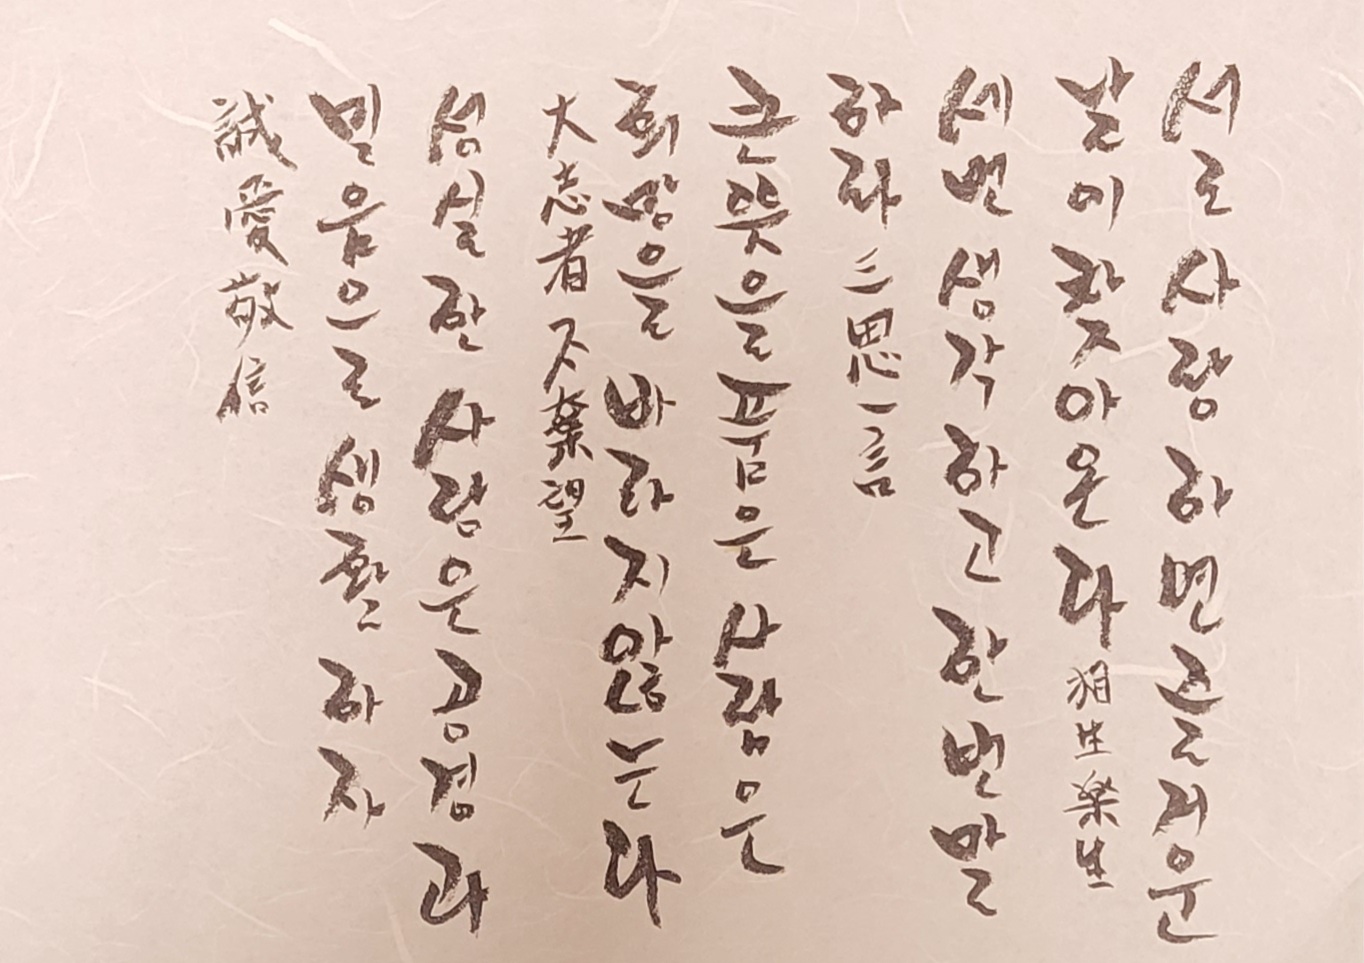 서로 사랑하면 즐거운
날이 찾아온다 相生樂生
세번 생각하고 한번 말
하라 三思一言
큰 뜻을 품은 사람은
희망을 바라지 않는다
大志者 不棄望
성실한 사람은 공경과
믿음으로 생활하자
誠愛敬信